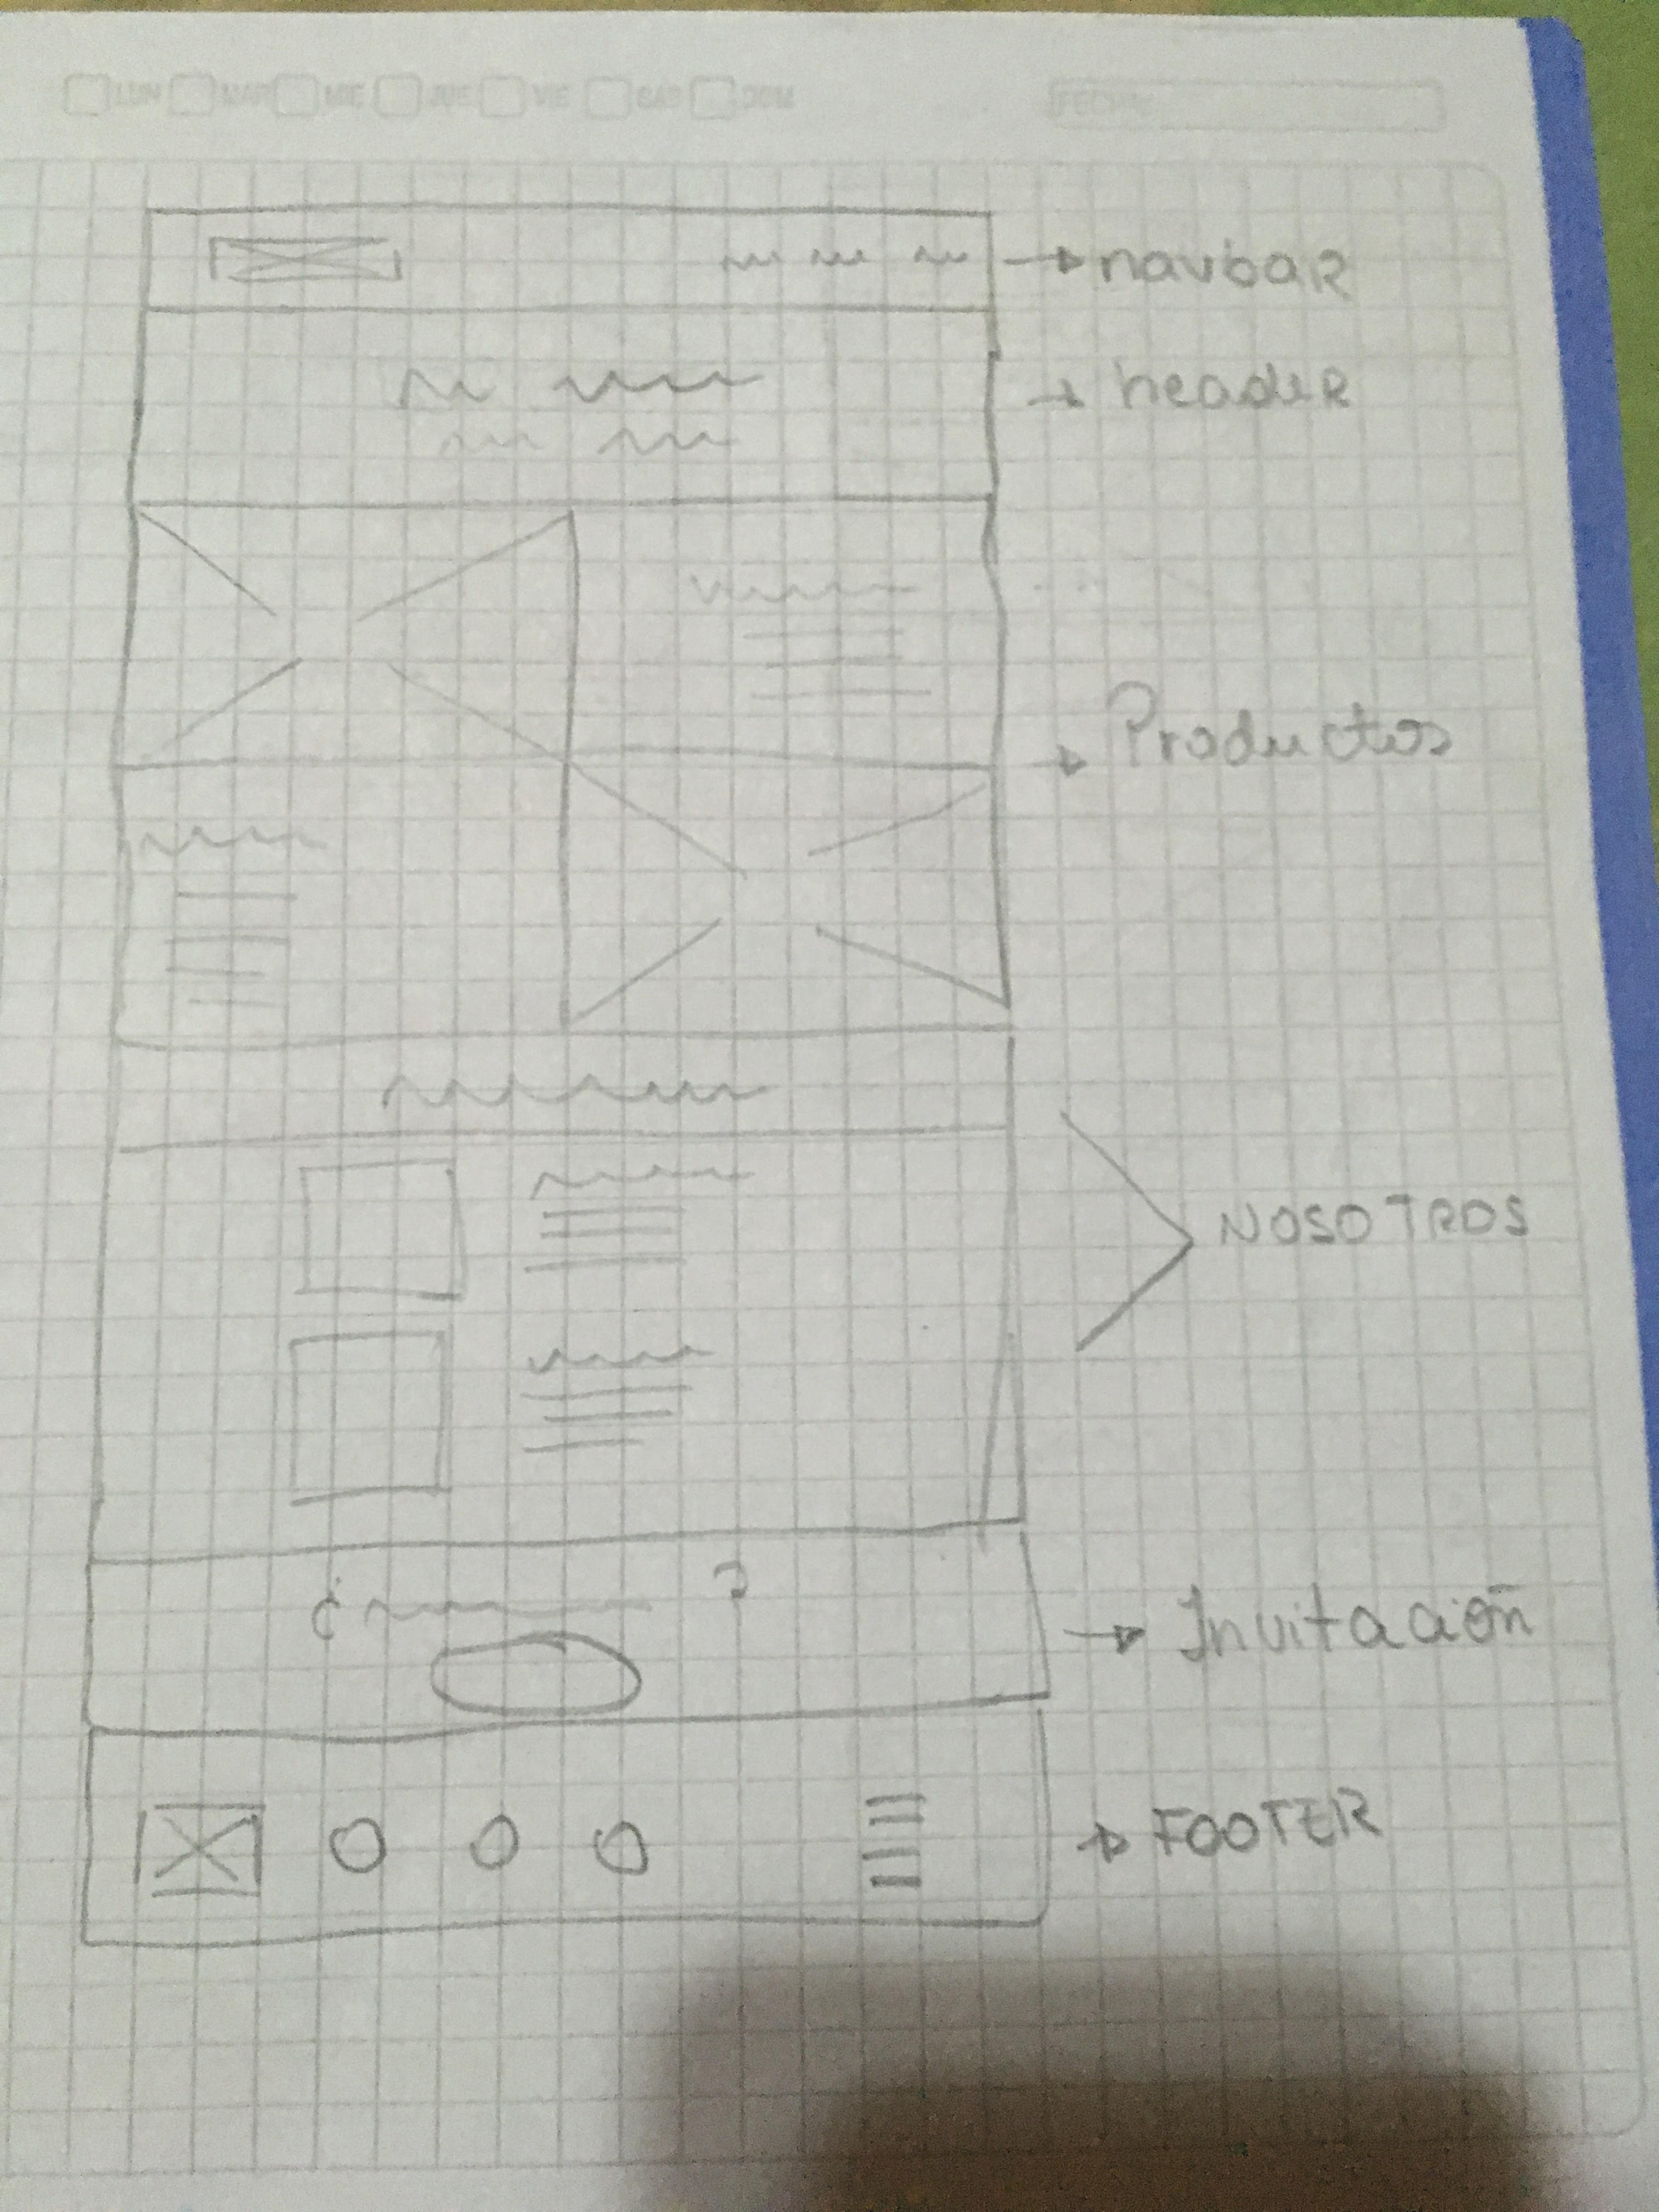 LUN MAR MIE JUE VIE SAB DOM FECHA:
navbar
header
Productos
NOSOTROS
¿ ?
Invitación
FOOTER